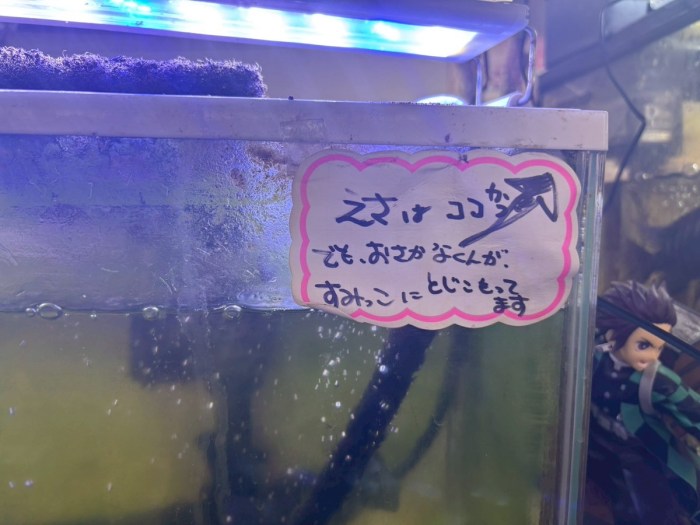 えさは ココから
でも、おさかなくんが、
すみっこに とじこもって
ます